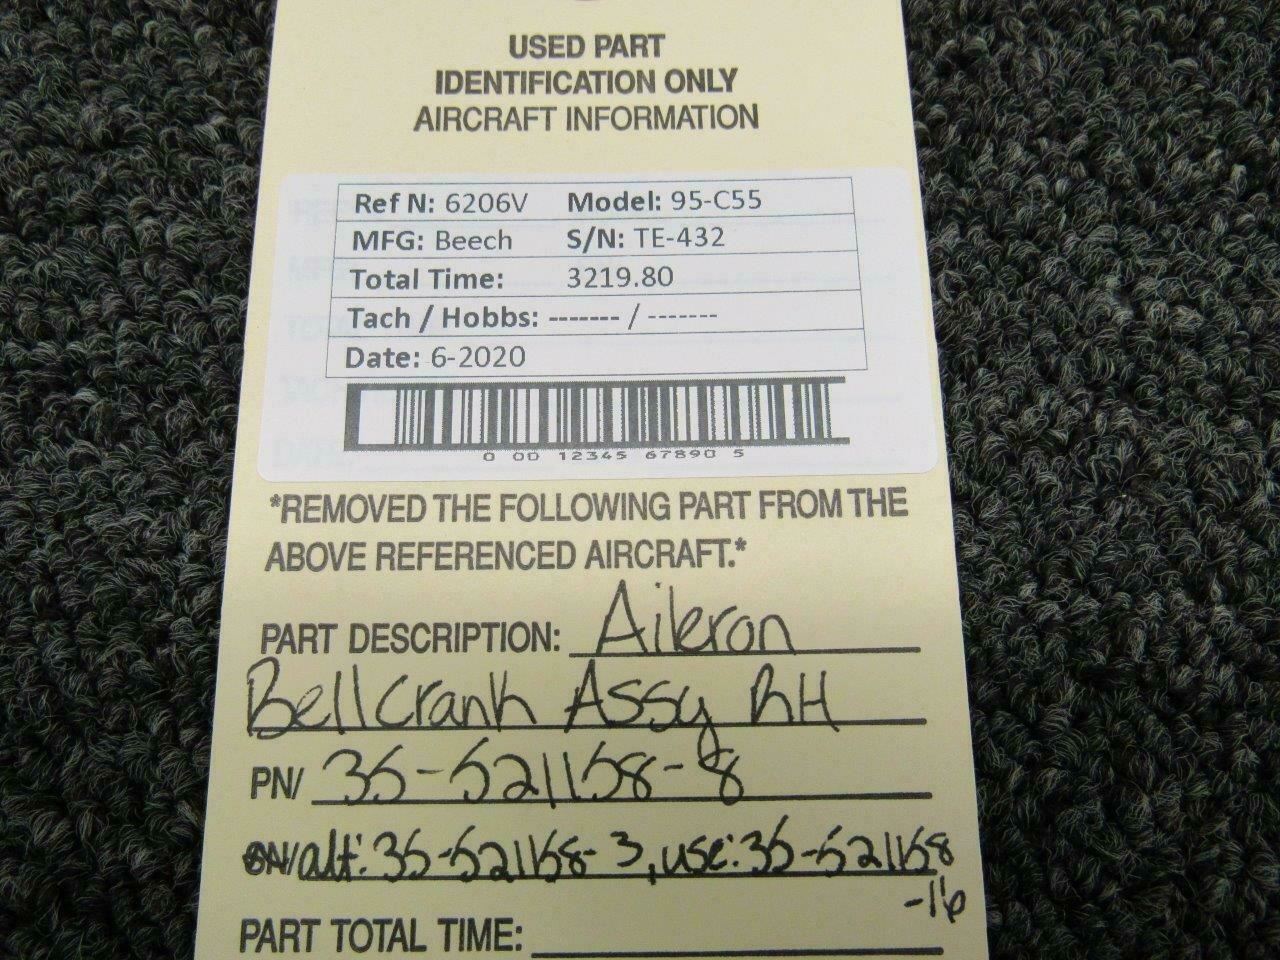 USED PART
IDENTIFICATION ONLY
AIRCRAFT INFORMATION
Ref N: 6206V Model: 95-C55
MFG: Beech S/N: TE-432
Total Time: 3219.80
Tach / Hobbs: ------- / -------
Date: 6-2020
0 00 12345 67890 5
*REMOVED THE FOLLOWING PART FROM THE
ABOVE REFERENCED AIRCRAFT.*
PART DESCRIPTION: Aileron
Bellcrank Assy RH
PN/ 35-521158-8
alt: 35-521158-3, use: 35-521158
-16
PART TOTAL TIME: